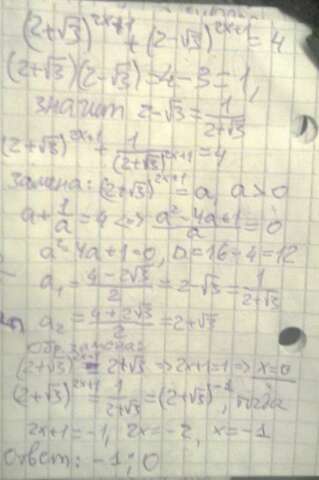 (2+√3)^{2x+1} + (2-√3)^{2x+1} = 4
(2+√3)(2-√3) = 4-3 = 1,
значит 2-√3 = 1/(2+√3)
(2+√3)^{2x+1} + 1/(2+√3)^{2x+1} = 4
замена: (2+√3)^{2x+1} = a, a > 0
a + 1/a = 4 <=> (a²-4a+1)/a = 0
a²-4a+1=0, D=16-4=12
a₁ = (4-2√3)/2 = 2-√3 = 1/(2+√3)
a₂ = (4+2√3)/2 = 2+√3
обр. замена:
(2+√3)^{2x+1} = 2+√3 => 2x+1=1 => x=0
(2+√3)^{2x+1} = 1/(2+√3) = (2+√3)^{-1}, тогда
2x+1=-1, 2x=-2, x=-1
ответ: -1; 0